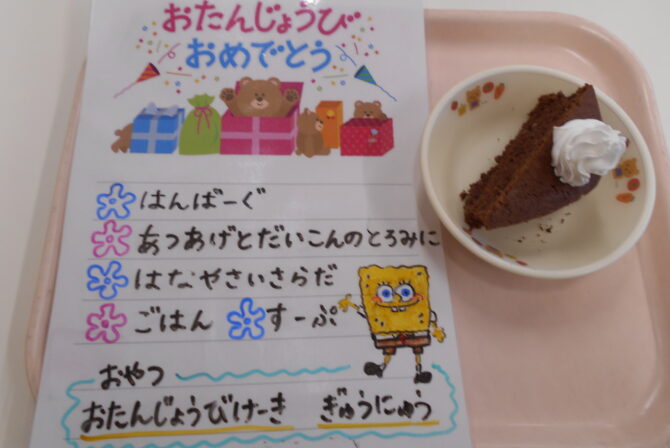 おたんじょうび
おめでとう
はんばーぐ
あつあげとだいこんのとろみに
はなやさいさらだ
ごはん すーぷ
おやつ
おたんじょうびけーき ぎゅうにゅう